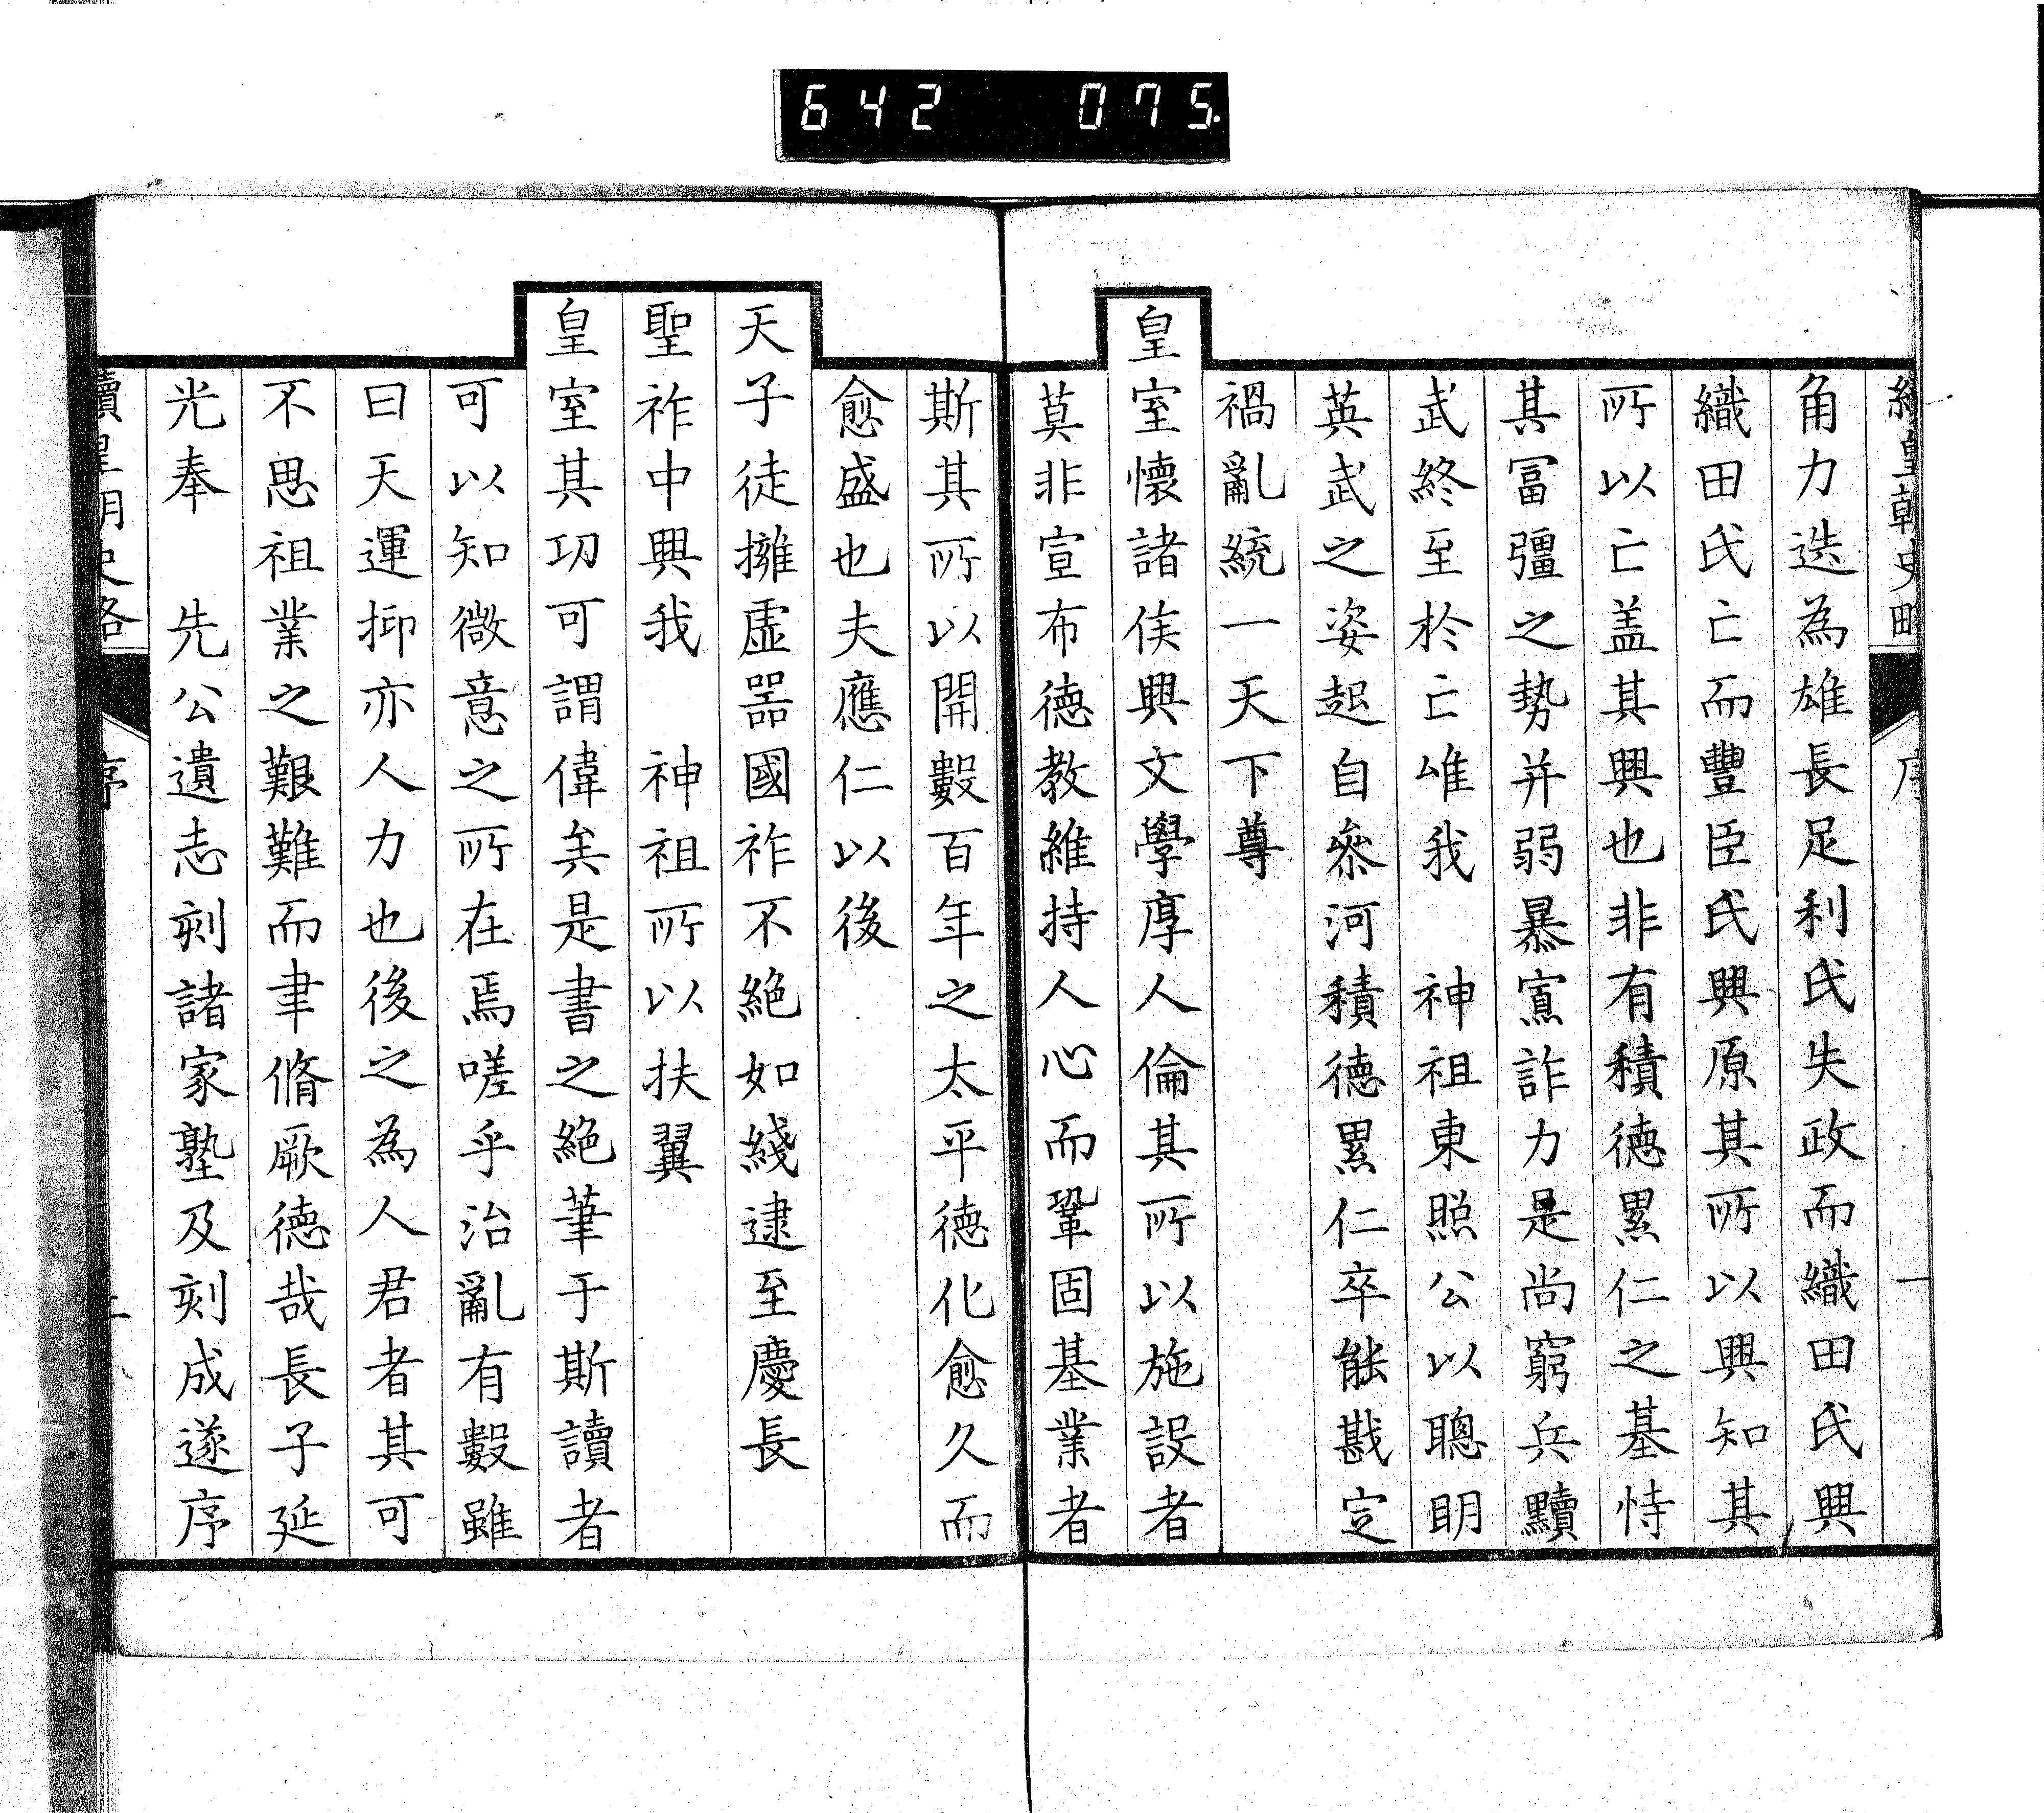 642 075
續皇朝史略 序 一
角力迭為雄長足利氏失政而織田氏興
織田氏亡而豐臣氏興原其所以興知其
所以亡盖其興也非有積德累仁之基恃
其冨彊之勢并弱暴寡詐力是尚窮兵黷
武終至於亡唯我 神祖東照公以聰明
英武之姿起自參河積德累仁卒能戡定
禍亂統一天下尊
皇室懷諸侯興文學厚人倫其所以施設者
莫非宣布德教維持人心而鞏固基業者
斯其所以開數百年之太平德化愈久而
愈盛也夫應仁以後
天子徒擁虛器國祚不絕如綫逮至慶長
聖祚中興我 神祖所以扶翼
皇室其功可謂偉矣是書之絕筆于斯讀者
可以知微意之所在焉嗟乎治亂有數雖
曰天運抑亦人力也後之為人君者其可
不思祖業之艱難而聿脩厥德哉長子延
光奉 先公遺志刻諸家塾及刻成遂序
續皇朝史略 序